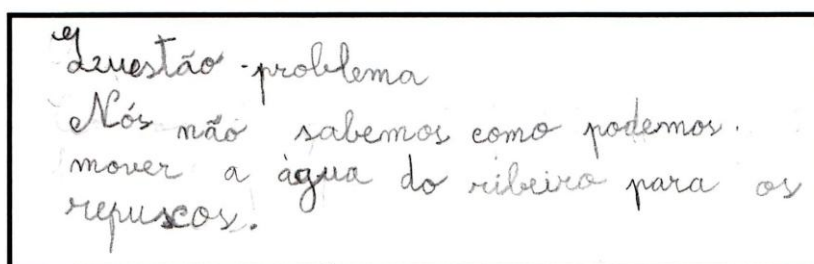 Questão-problema
Nós não sabemos como podemos.
mover a àgua do ribeiro para os
repuscos.